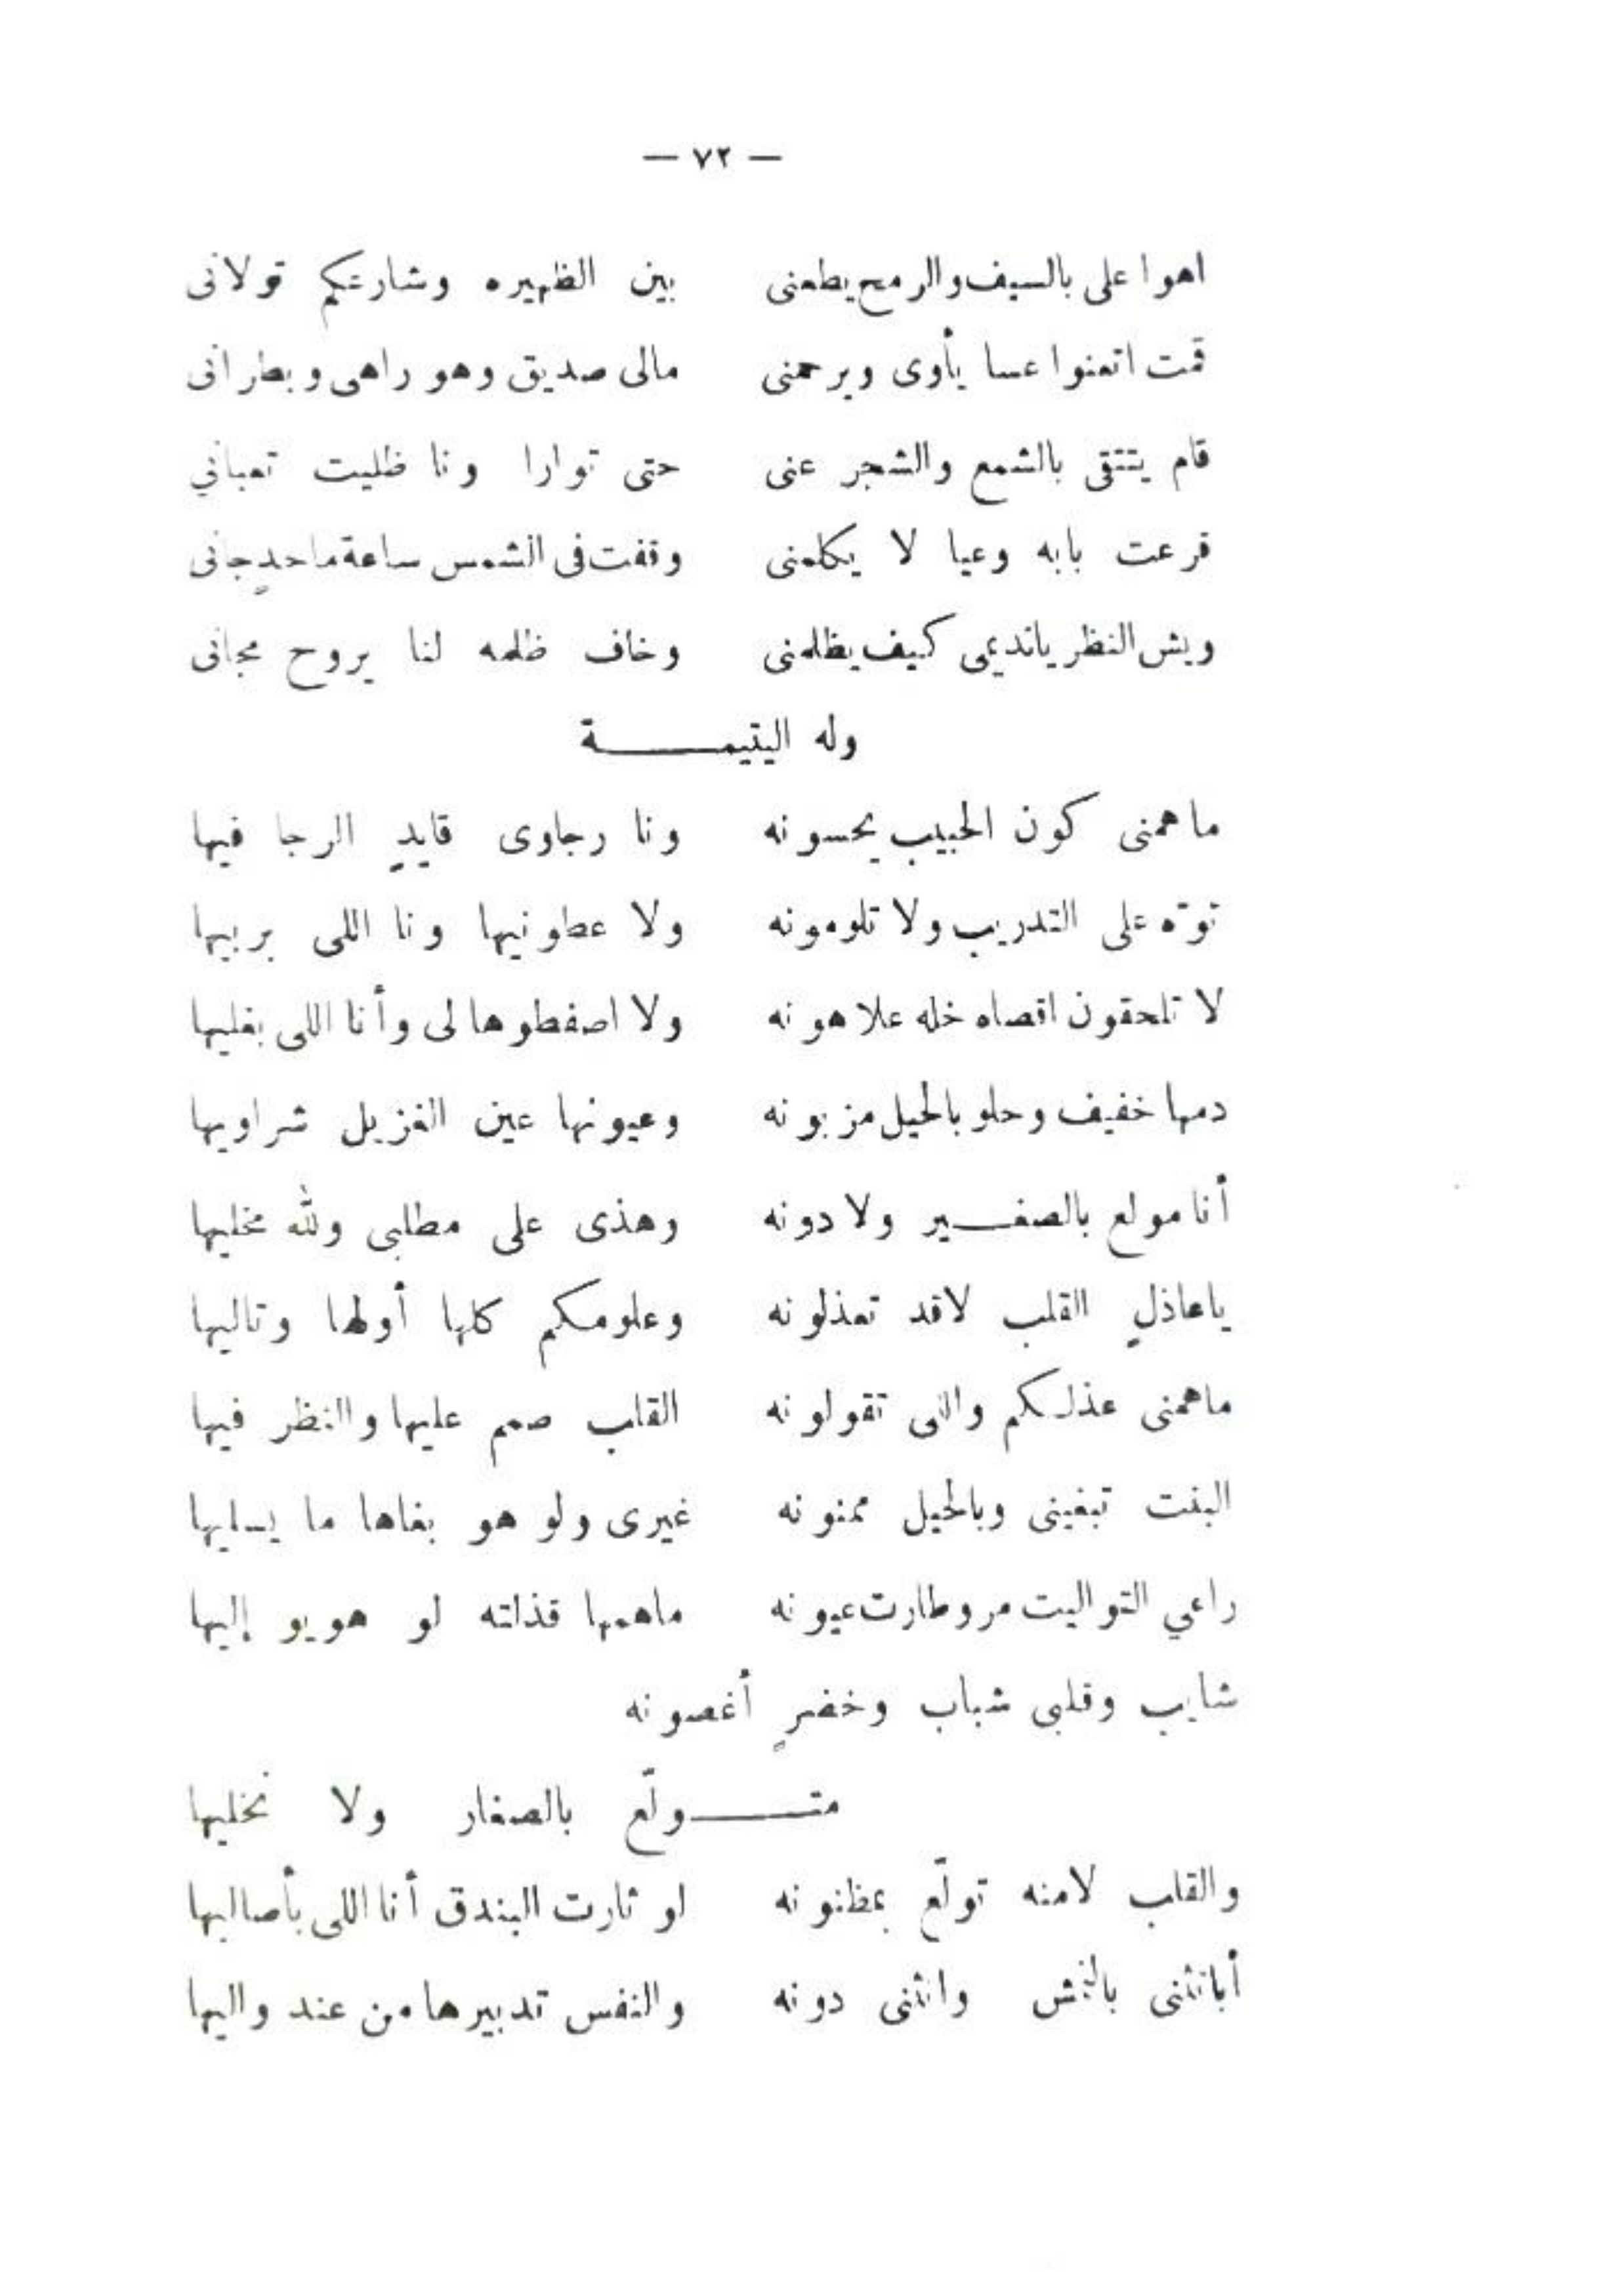 — ٧٢ —
اهوا على بالسيف والرمح يطعنى بين الظهيره وشارعكم قولانى
قمت اتعنوا عسا يأوى ويرحمنى مالى صديق وهو راهى وبطرانى
قام يتتقى بالشمع والشجر عنى حتى توارا ونا ظليت تعباني
قرعت بابه وعيا لا يكلمنى وقفت فى الشمس ساعة ماحدٍ جانى
ويش النظر يانديمى كيف يظلمنى وخاف ظلمه لنا يروح مجانى
وله اليتيمـــــة
ماهمنى كون الحبيب يحسونه ونا رجاوى قايدٍ الرجا فيها
توّه على التدريب ولا تلومونه ولا عطونيها ونا اللى بربيها
لا تلحقون اقصاه خله علا هونه ولا اصفطوها لى وأنا اللى بغليها
دمها خفيف وحلو بالحيل مزبونه وعيونها عين الغزيل شراويها
أنا مولع بالصغـــير ولا دونه وهذى على مطلبى ولله مخليها
ياعاذلٍ القلب لاقد تعذلونه وعلومكم كلها أولها وتاليها
ماهمنى عذلكم والى تقولونه القلب صمم عليها والنظر فيها
البنت تبغينى وبالحيل ممنونه غيرى ولو هو بغاها ما يسليها
راعي التواليت مر وطارت عيونه ماهمها قذلته لو هويو إليها
شايب وقلبى شباب وخضرٍ أغصونه
متـــــولّع بالصغار ولا نخليها
والقلب لامنه تولّع بمظنونه لو ثارت البندق أنا اللى بأصاليها
أبانثنى بالنش وانثنى دونه والنفس تدبيرها من عند واليها